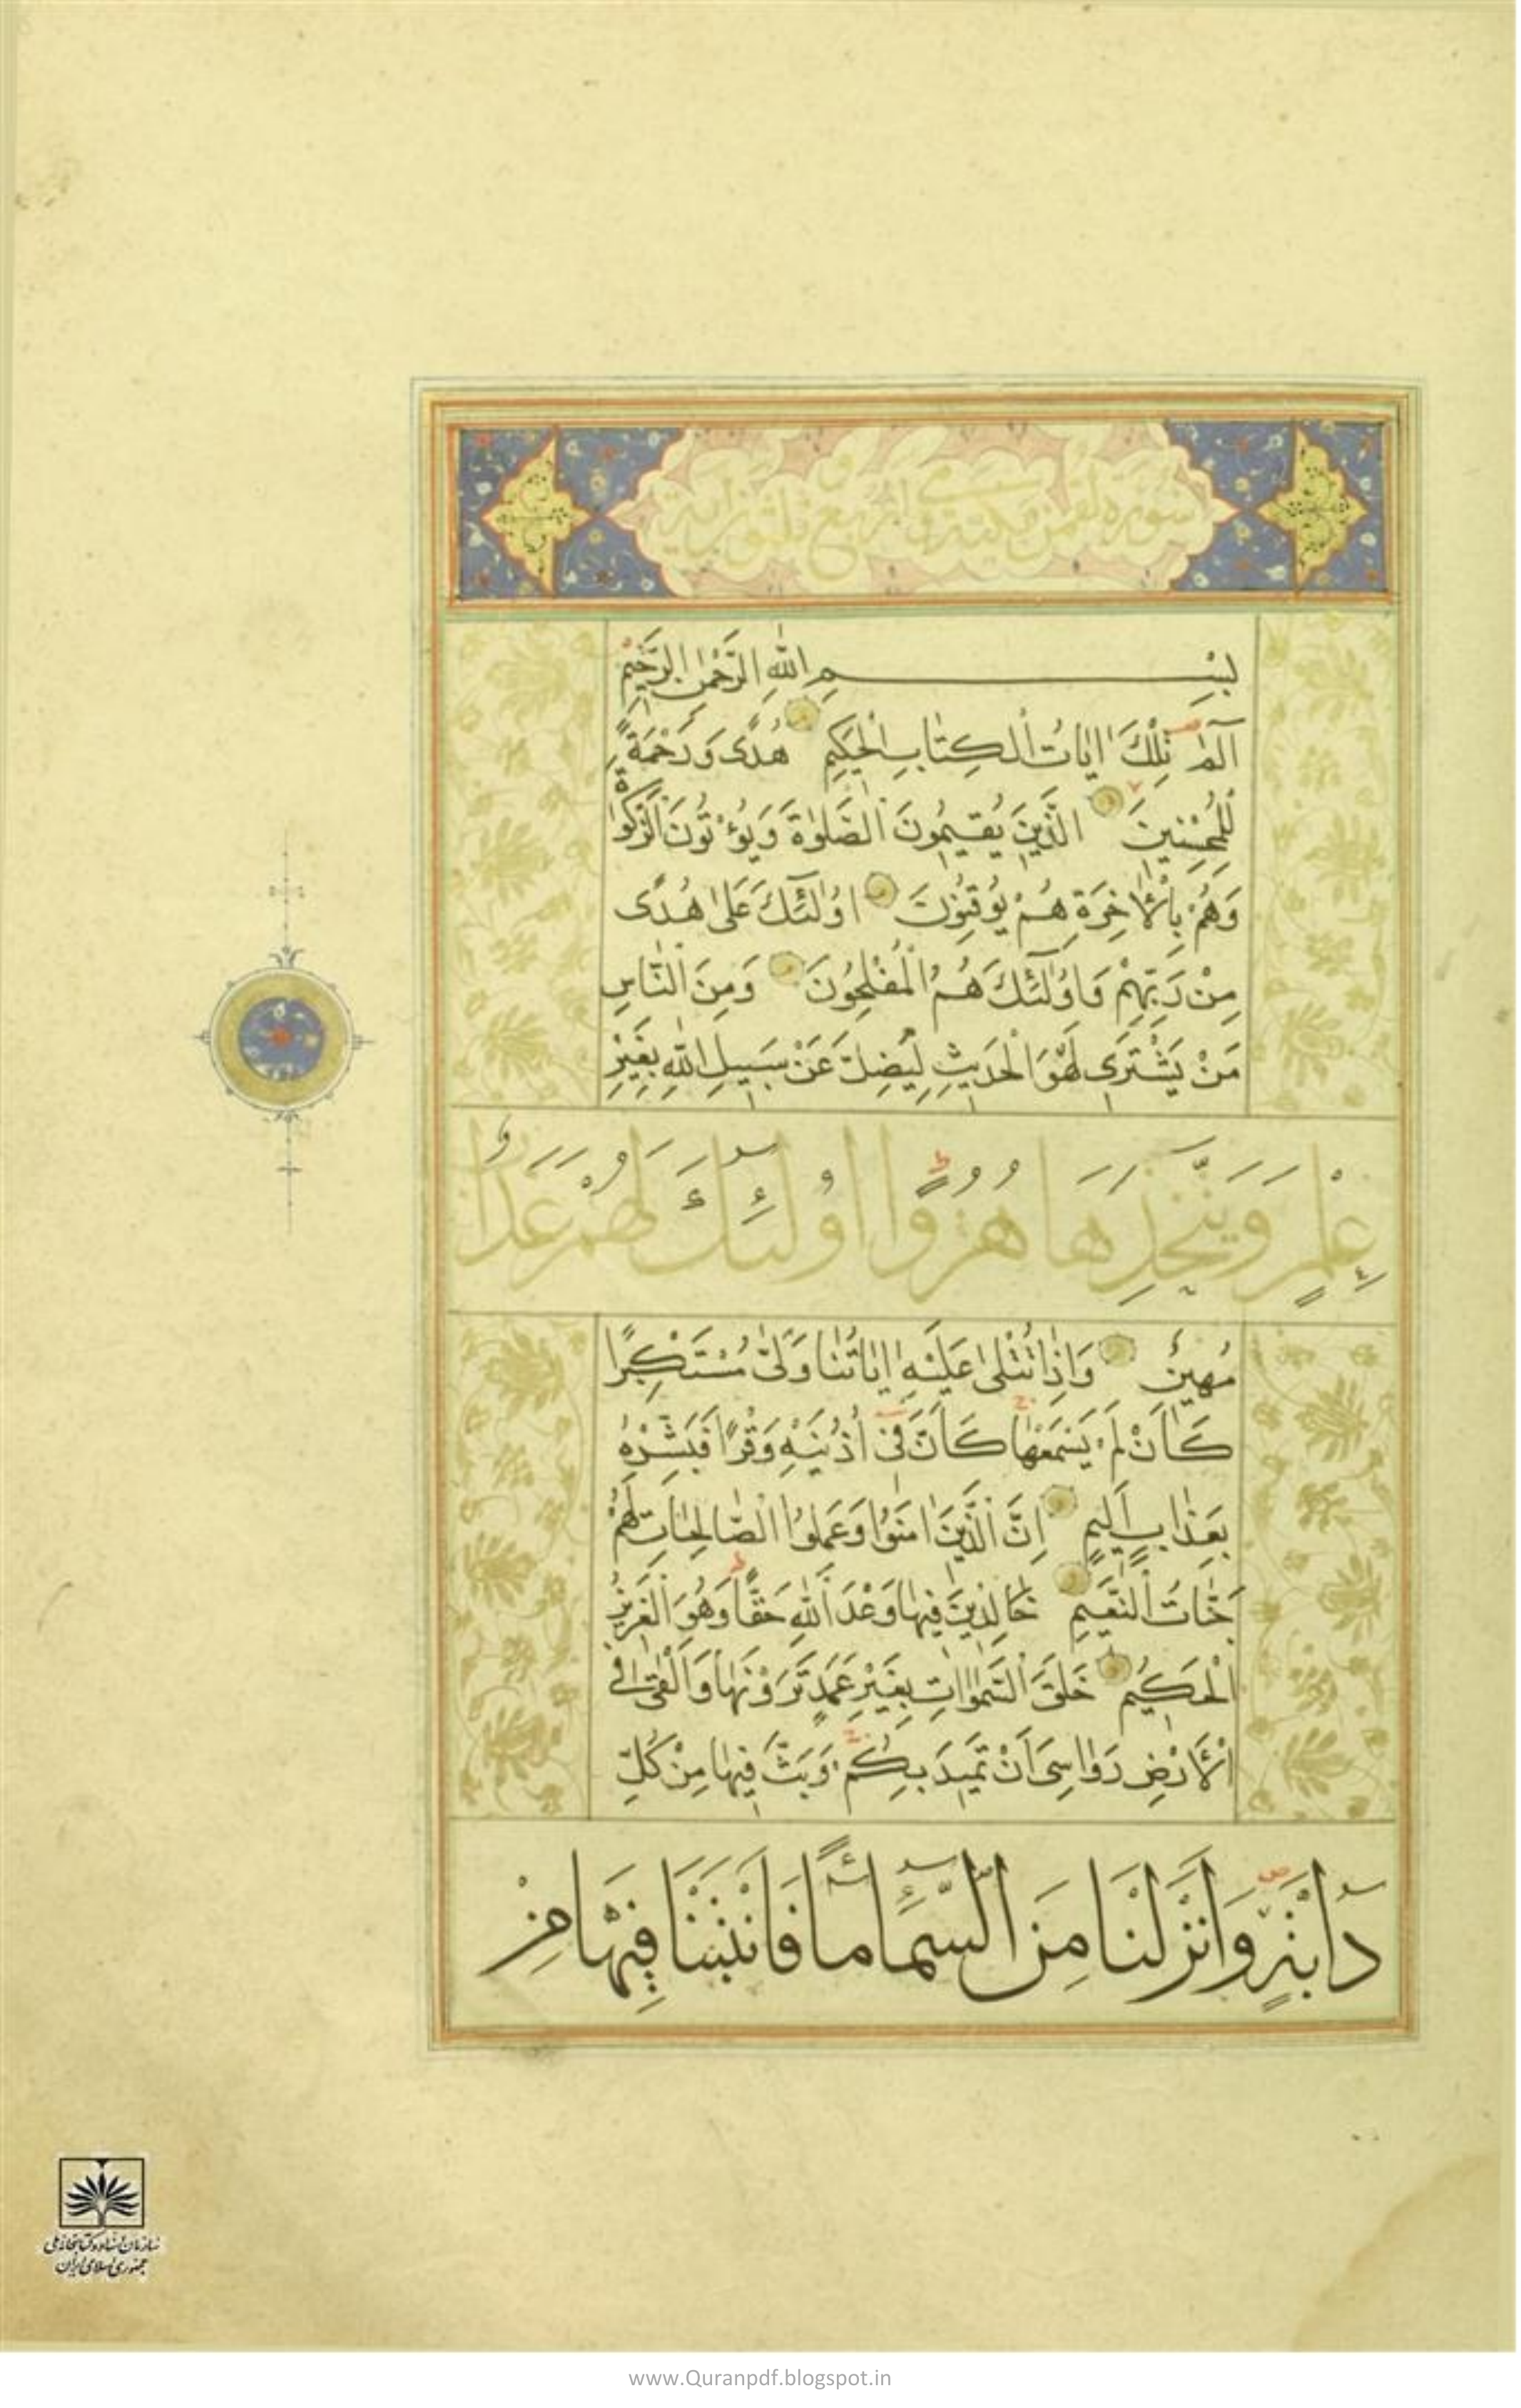 سورة لقمن مكية و هي اربع ثلثون اية
بِسْمِ اللهِ الرَّحْمٰنِ الرَّحِيْمِ
الٓمٓ تِلْكَ اٰيَاتُ الْكِتَابِ الْحَكِيْمِ هُدًى وَرَحْمَةً
لِلْمُحْسِنِينَ الَّذِينَ يُقِيمُونَ الصَّلٰوةَ وَيُؤْتُونَ الزَّكٰوةَ
وَهُمْ بِالْاٰخِرَةِ هُمْ يُوقِنُونَ اُولٰٓئِكَ عَلٰى هُدًى
مِنْ رَبِّهِمْ وَاُولٰٓئِكَ هُمُ الْمُفْلِحُونَ وَمِنَ النَّاسِ
مَنْ يَشْتَرِى لَهْوَ الْحَدِيثِ لِيُضِلَّ عَنْ سَبِيلِ اللهِ بِغَيْرِ
عِلْمٍ وَيَتَّخِذَهَا هُزُوًا اُولٰٓئِكَ لَهُمْ عَذَابٌ
مُهِينٌ وَاِذَا تُتْلٰى عَلَيْهِ اٰيَاتُنَا وَلّٰى مُسْتَكْبِرًا
كَاَنْ لَمْ يَسْمَعْهَا كَاَنَّ فِى اُذُنَيْهِ وَقْرًا فَبَشِّرْهُ
بِعَذَابٍ اَلِيمٍ اِنَّ الَّذِينَ اٰمَنُوا وَعَمِلُوا الصَّالِحَاتِ لَهُمْ
جَنَّاتُ النَّعِيمِ خَالِدِينَ فِيهَا وَعْدَ اللهِ حَقًّا وَهُوَ الْعَزِيزُ
الْحَكِيمُ خَلَقَ السَّمٰوَاتِ بِغَيْرِ عَمَدٍ تَرَوْنَهَا وَاَلْقٰى فِى
الْاَرْضِ رَوَاسِىَ اَنْ تَمِيدَ بِكُمْ وَبَثَّ فِيهَا مِنْ كُلِّ
دَابَّةٍ وَاَنْزَلْنَا مِنَ السَّمَآءِ مَآءً فَاَنْبَتْنَا فِيهَا مِنْ
سازمان اسناد و کتابخانه ملی
جمهوری اسلامی ایران
www.Quranpdf.blogspot.in